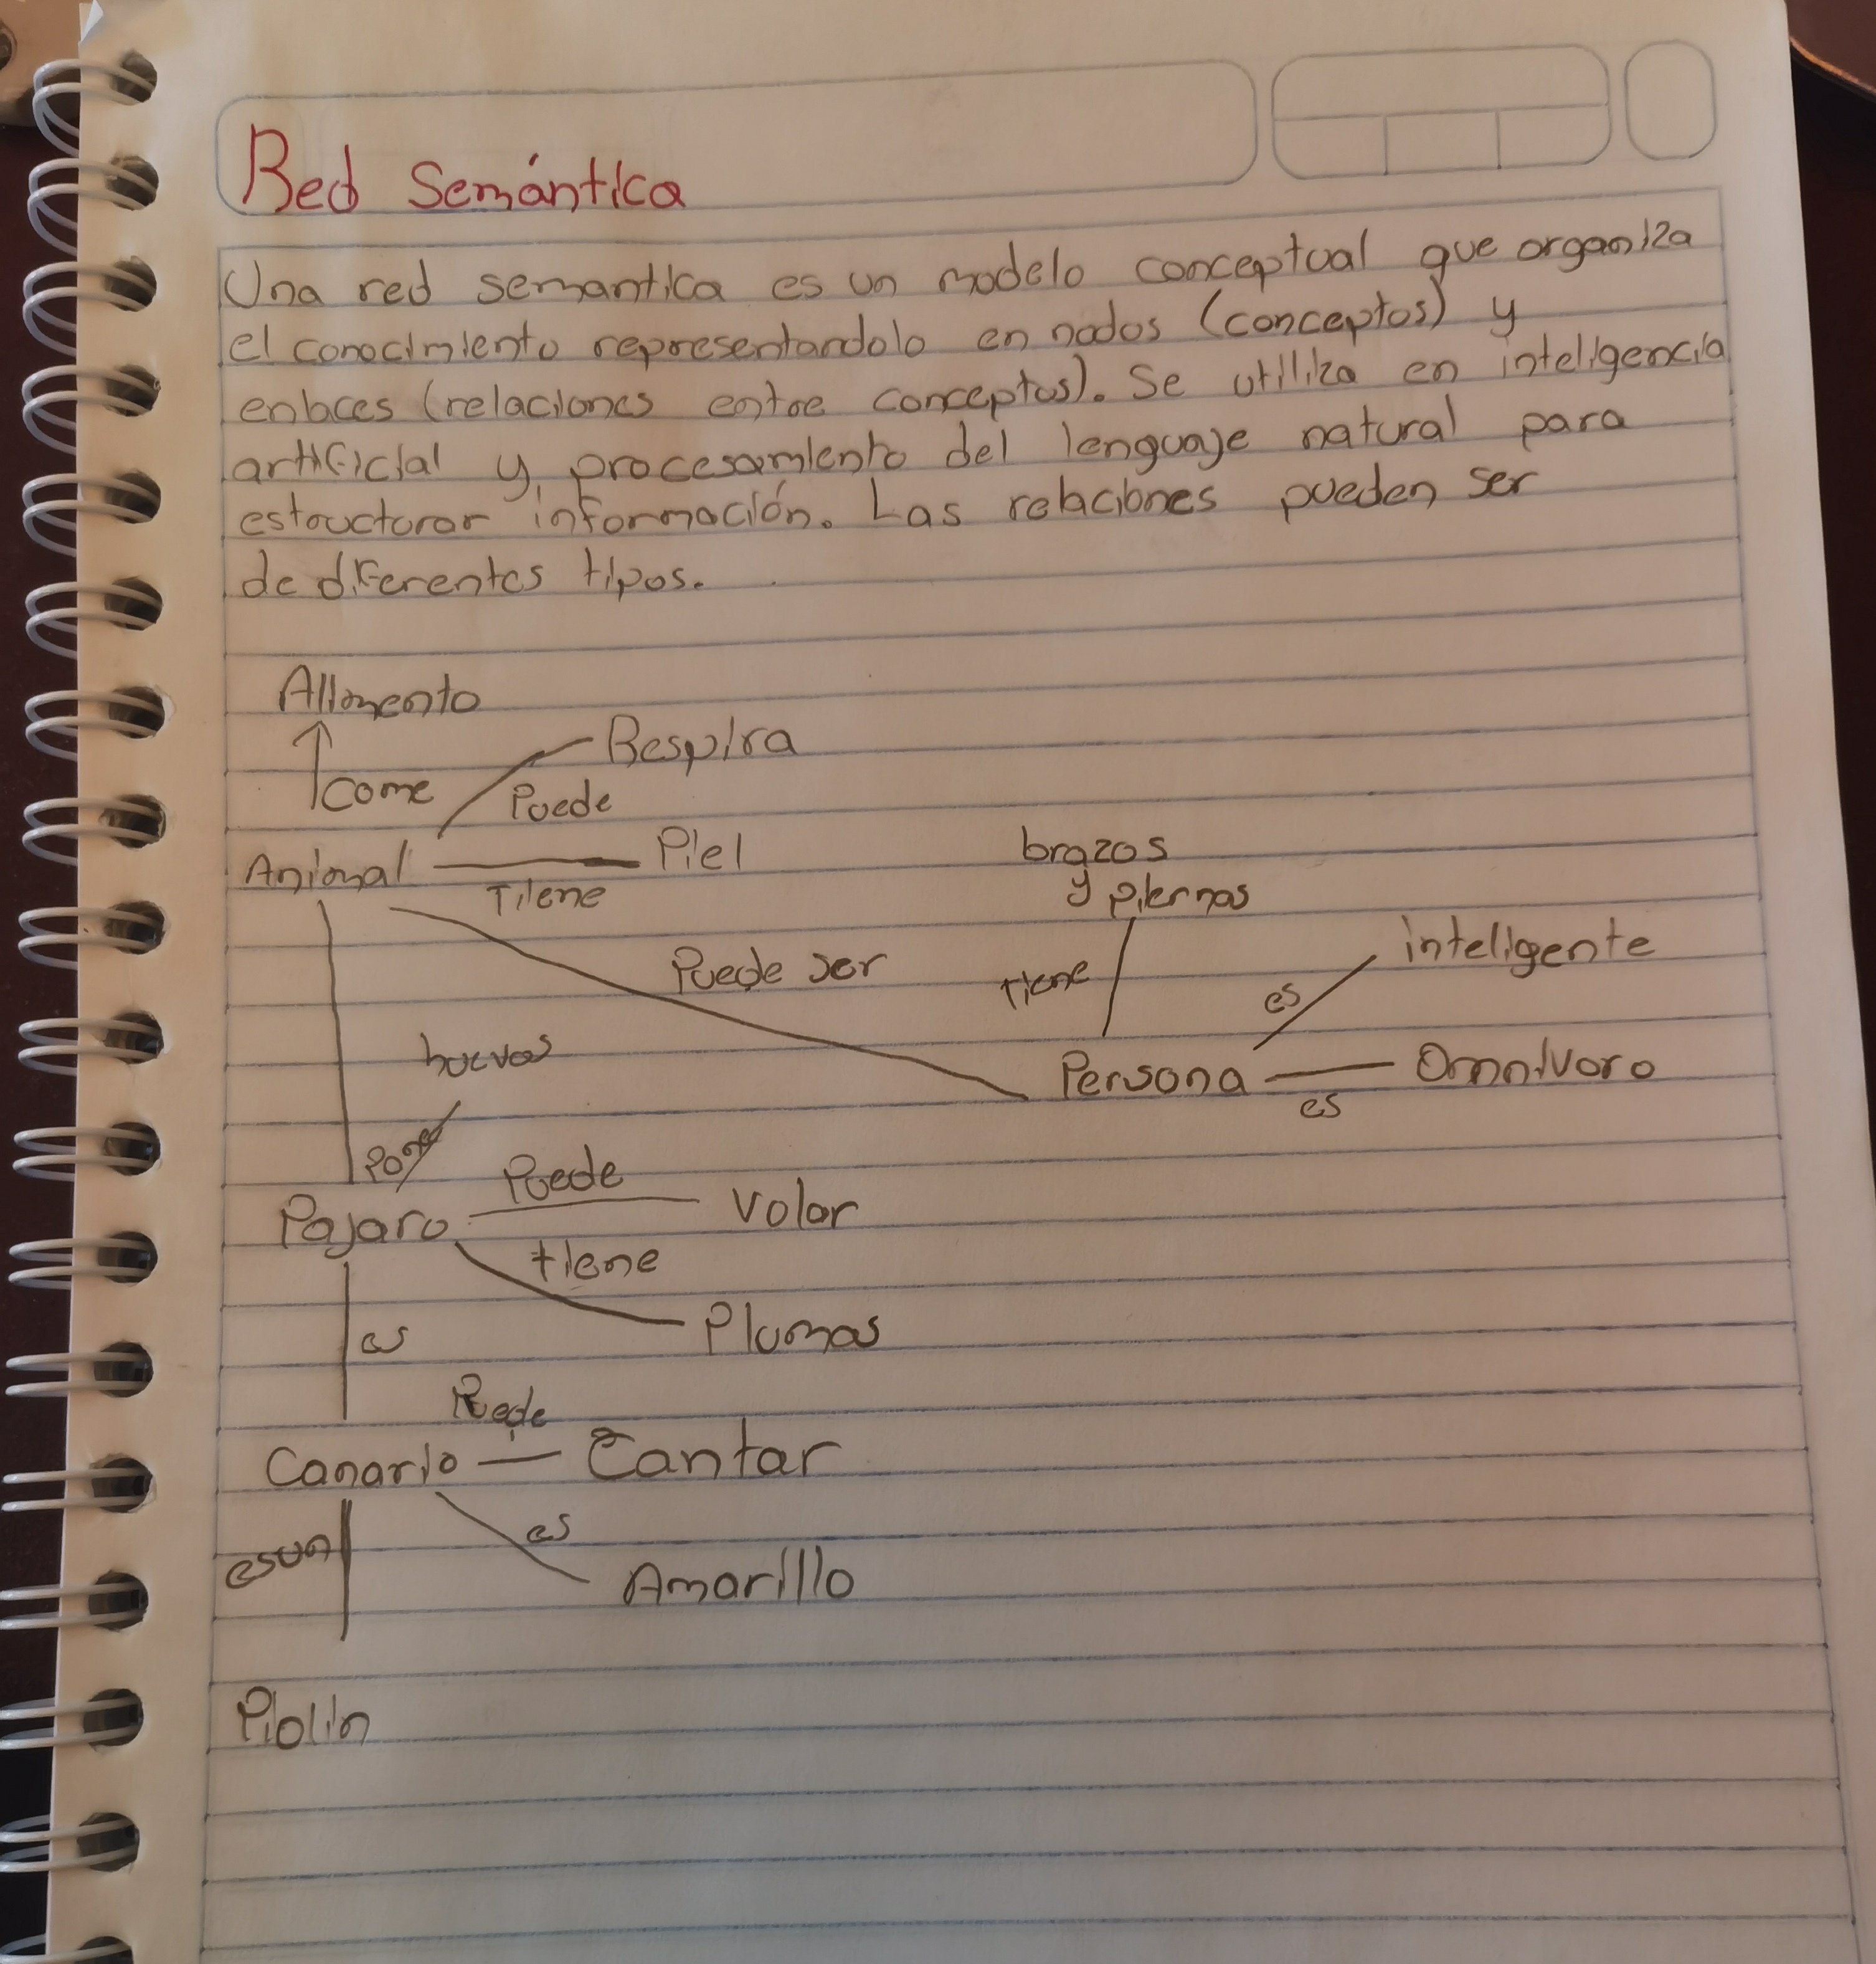 Red Semántica
Una red semantica es un modelo conceptual que organiza
el conocimiento representandolo en nodos (conceptos) y
enlaces (relaciones entre conceptos). Se utiliza en inteligencia
artificial y procesamiento del lenguaje natural para
estructurar información. Las relaciones pueden ser
de diferentes tipos.
Alimento
Respira
come
Puede
Animal
Piel
Tiene
brazos
y piernas
Puede ser
tiene
es
inteligente
huevos
Persona
Omnivoro
es
Pone
Puede
Pajaro
Volar
tiene
Plumas
es
Puede
Canario
Cantar
es
es un
Amarillo
Piolin